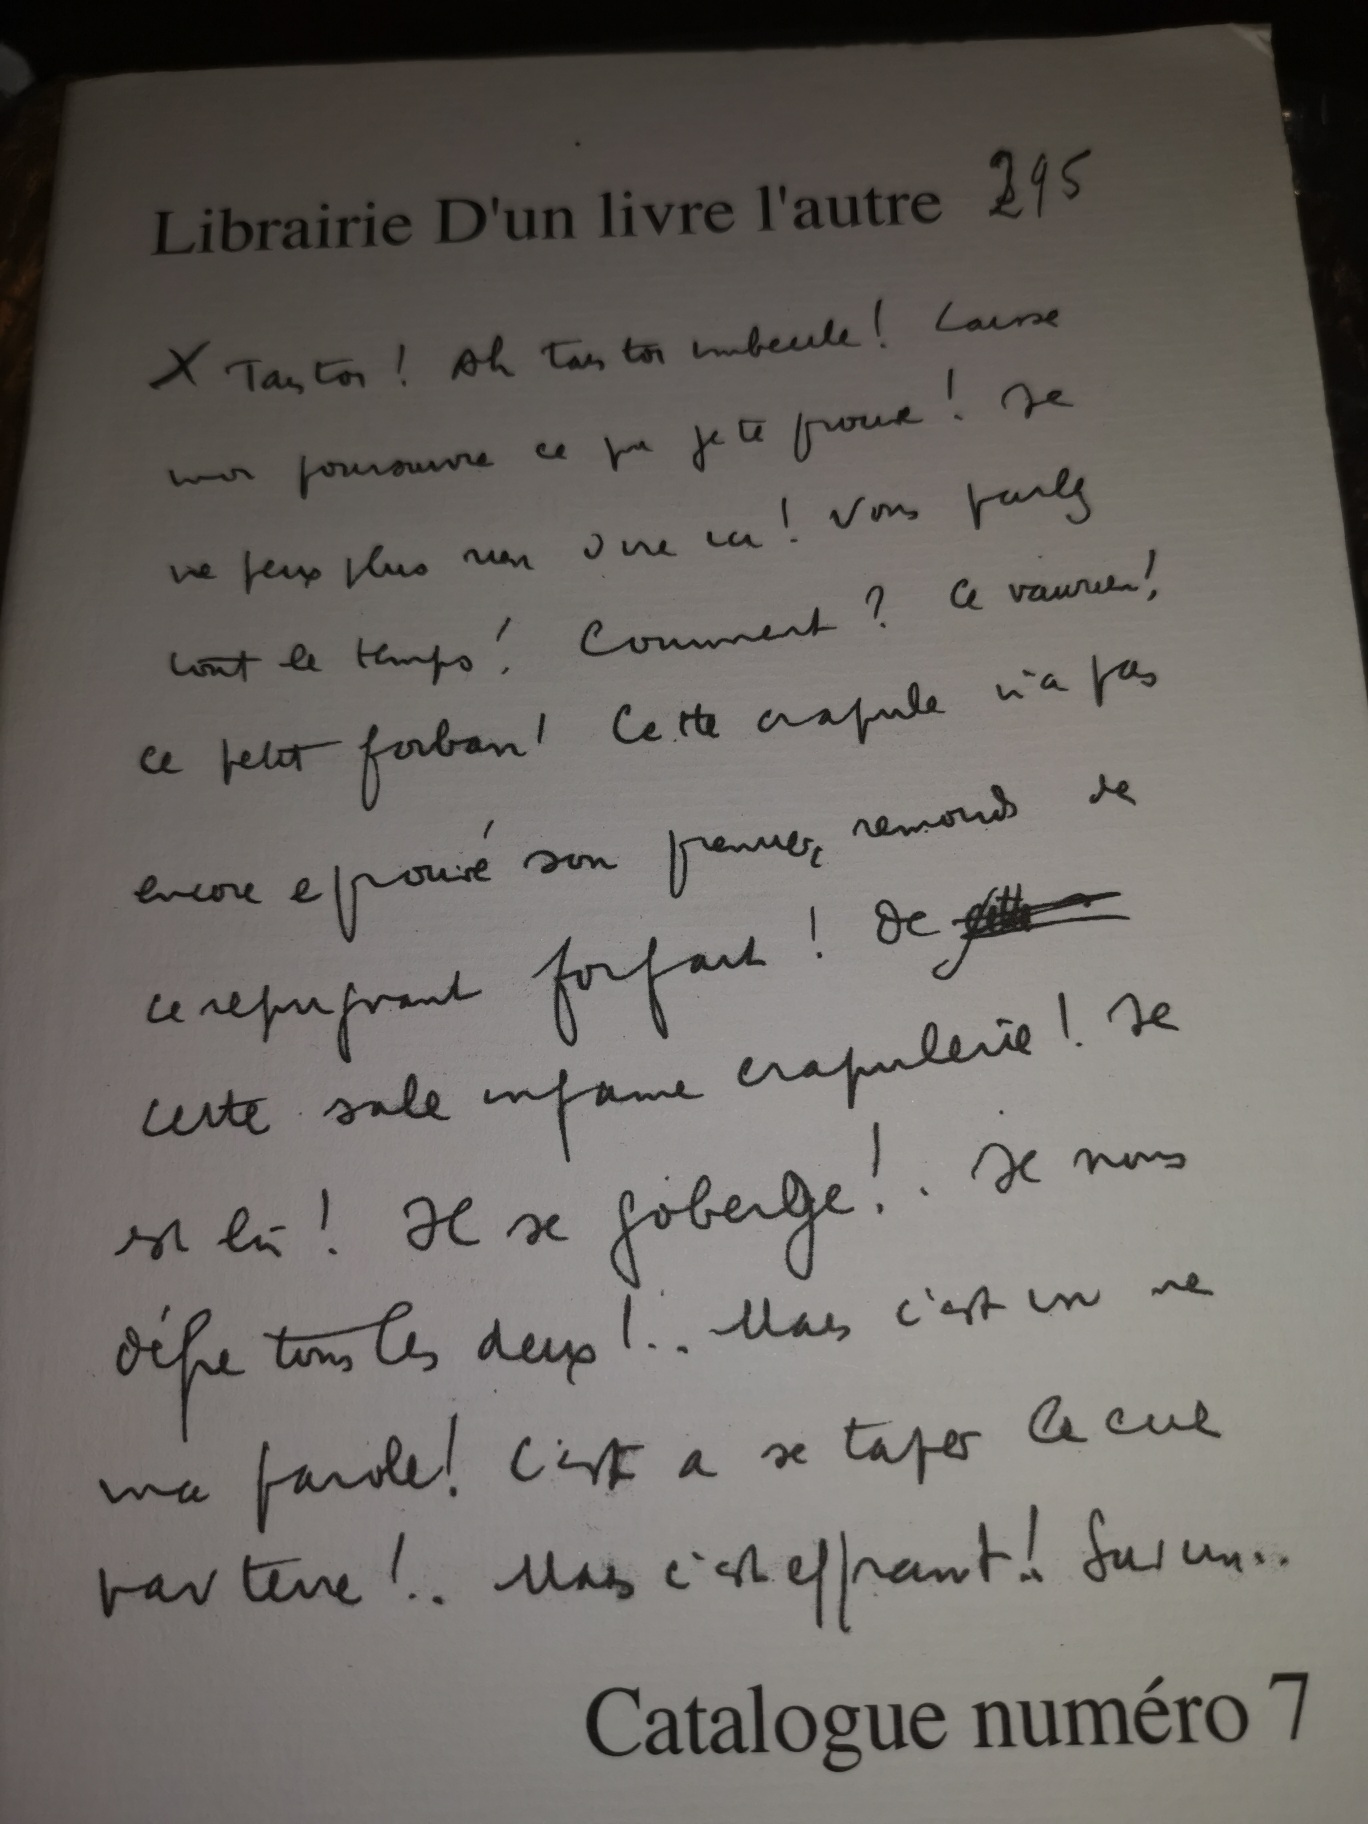 Librairie D'un livre l'autre 295
X Tais toi! Ah tais toi imbecile! Laisse
moi poursuivre ce que je te prouve! Je
ne peux plus rien dire ici! Vous parlez
tout le temps! Comment? Ce vaurien!
ce petit forban! Cette crapule n'a pas
encore eprouvé son premier remords de
ce repugnant forfait! De
cette sale infame crapulerie! Je
est là! Il se goberge!. Je nous
défie tous les deux!.. Mais c'est un
ma parole! C'est a se taper le cul
par terre!.. Mais c'est effrayant!! Sur un..
Catalogue numéro 7